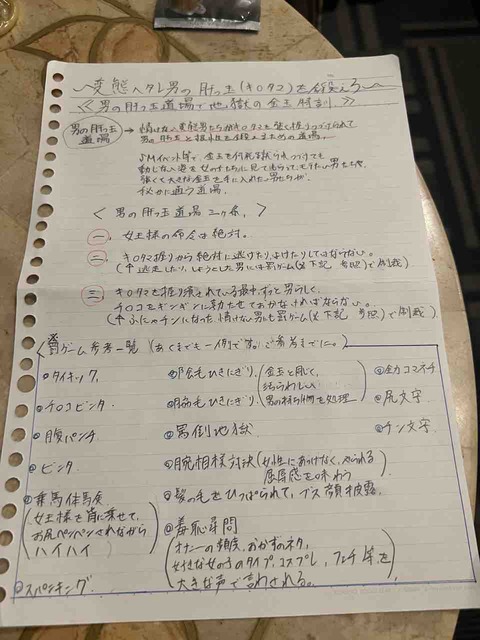 〜変態ヘタレ男の肝っ玉(キ○タマ)を鍛えろ〜
≪男の肝っ玉道場で地獄の金玉特訓≫
男の肝っ玉道場 → 情けない変態男たちがキ○タマを強く握りつづけられて
男の肝っ玉と根性を鍛えるための道場。
SMイベント等で、金玉を何発蹴られつづけても
動じない姿を女の子たちに見てもらってモテたい男たちや、
強くて大きな金玉を手に入れたい男たちが、
秘かに通う道場。
<男の肝っ玉道場 三ヶ条。>
一、女王様の命令は絶対。
二、キ○タマ握りから絶対に逃げたりよけたりしてはならない。
(↑逃走したり、しようとした男には罰ゲーム(※下記 参照)で制裁)
三、キ○タマを握り潰されている最中、ずっと男らしく、
チ○コをギンギンに勃たせておかなければならない。
(↑ふにゃチンになった、情けない男も罰ゲーム(※下記 参照)で制裁)
<罰ゲーム参考一覧 (あくまでも一例です。ご参考までに。)
○タイキック。
○チ○コビンタ
○腹パンチ
○ビンタ
○乗馬体馬反
(女王様を背に乗せて、
お尻ペンペンされながら
ハイハイ)
○スパンキング。
○陰毛ひきにぎり、
○脇毛ひきにぎり、
(金玉と同じく、
汚らわしい
男の 物を処理)
○罵倒地獄
○腕相撲対決(女性にあっけなく、やられる
屈辱感を味わう)
○髪の毛をひっぱられて、ブス顔披露。
○羞恥尋問
(オナニーの頻度、おかずのネタ、
好きな女の子のタイプ、コスプレ、フェチ等を
大きな声で言わされる。)
○全力コマネチ
○尻文字
○チン文字